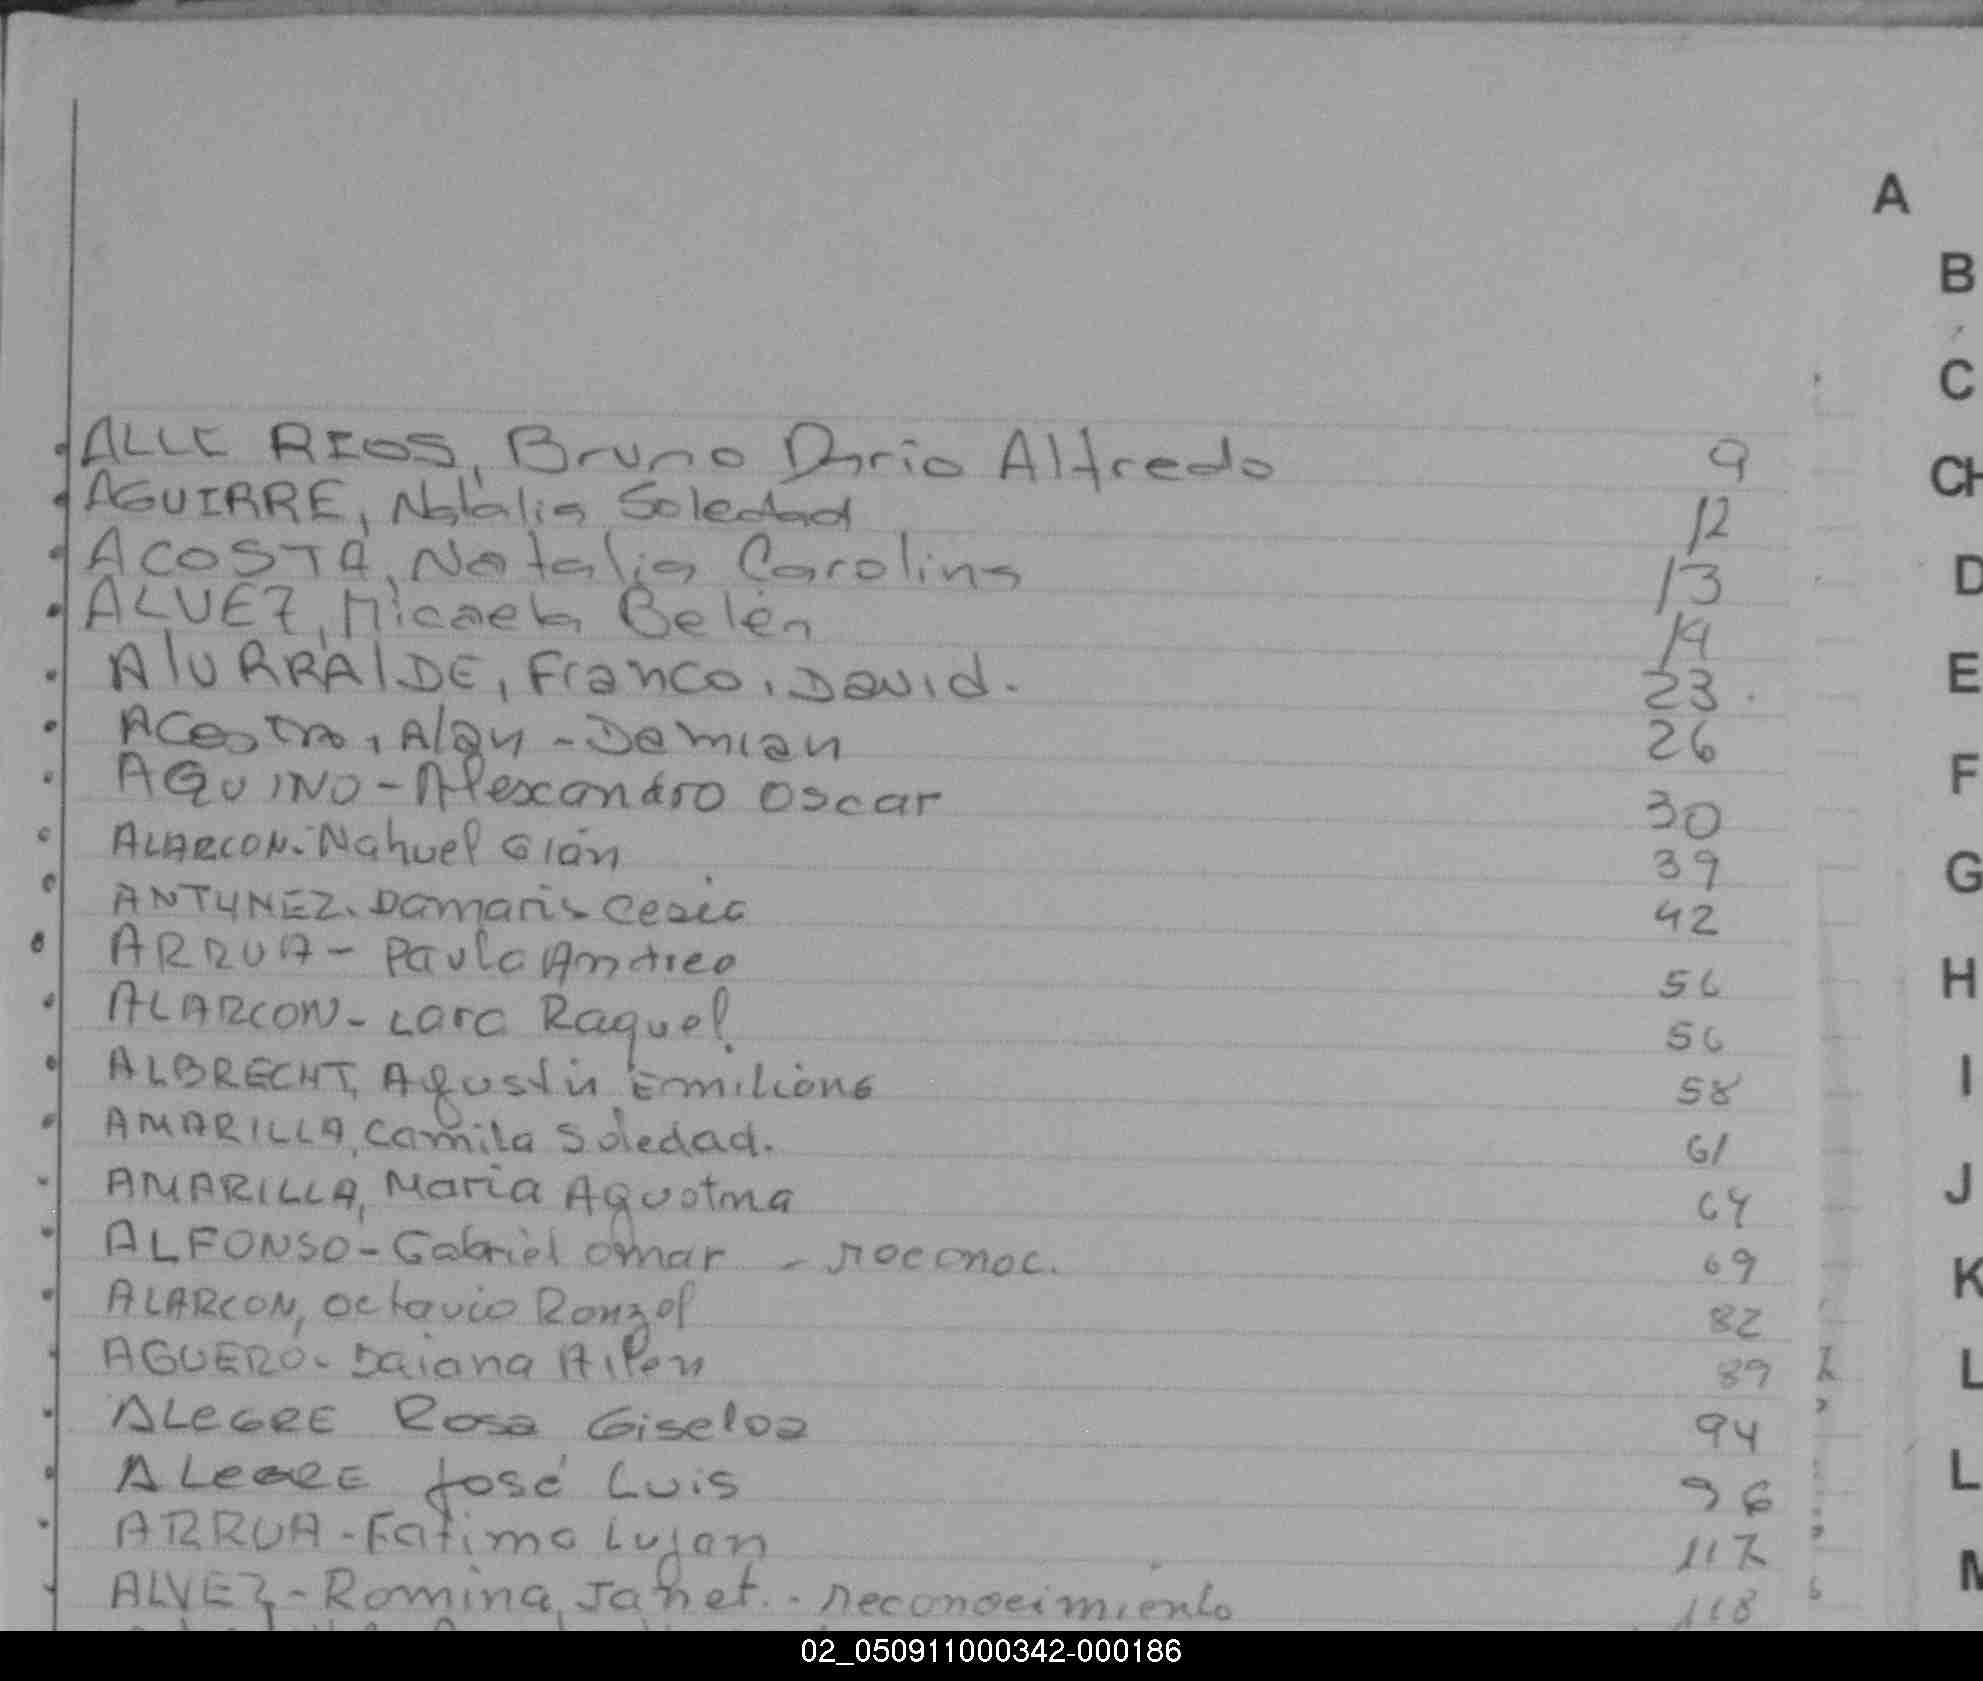 A
B
C
CH
D
E
F
G
H
I
J
K
L
L
M
ALLE RIOS, Bruno Dario Alfredo 9
AGUIRRE, Natalia Soledad 12
ACOSTA, Natalia Carolina 13
ALVEZ, Micaela Belén 14
AlURRAlDE, Franco, David. 23
ACosta, Alan - Damian 26
AQUINO - Alexandro Oscar 30
ALARCON - Nahuel Gian 39
ANTUNEZ. Damaris Cesia 42
ARRUA - Paula Andrea 56
ALARCON - Lara Raquel. 56
ALBRECHT, Agustin Emiliano 58
AMARILLA, Camila Soledad. 61
AMARILLA, Maria Agustina 64
ALFONSO - Gabriel Omar - reconoc. 69
ALARCON, Octavio 82
AGUERO - Daiana Ailen 89
ALEGRE Rosa Gisela 94
ALEGRE José Luis 96
ARRUA - Fatima Lujan 117
ALVEZ - Romina, Janet. - reconocimiento 118
02_050911000342-000186